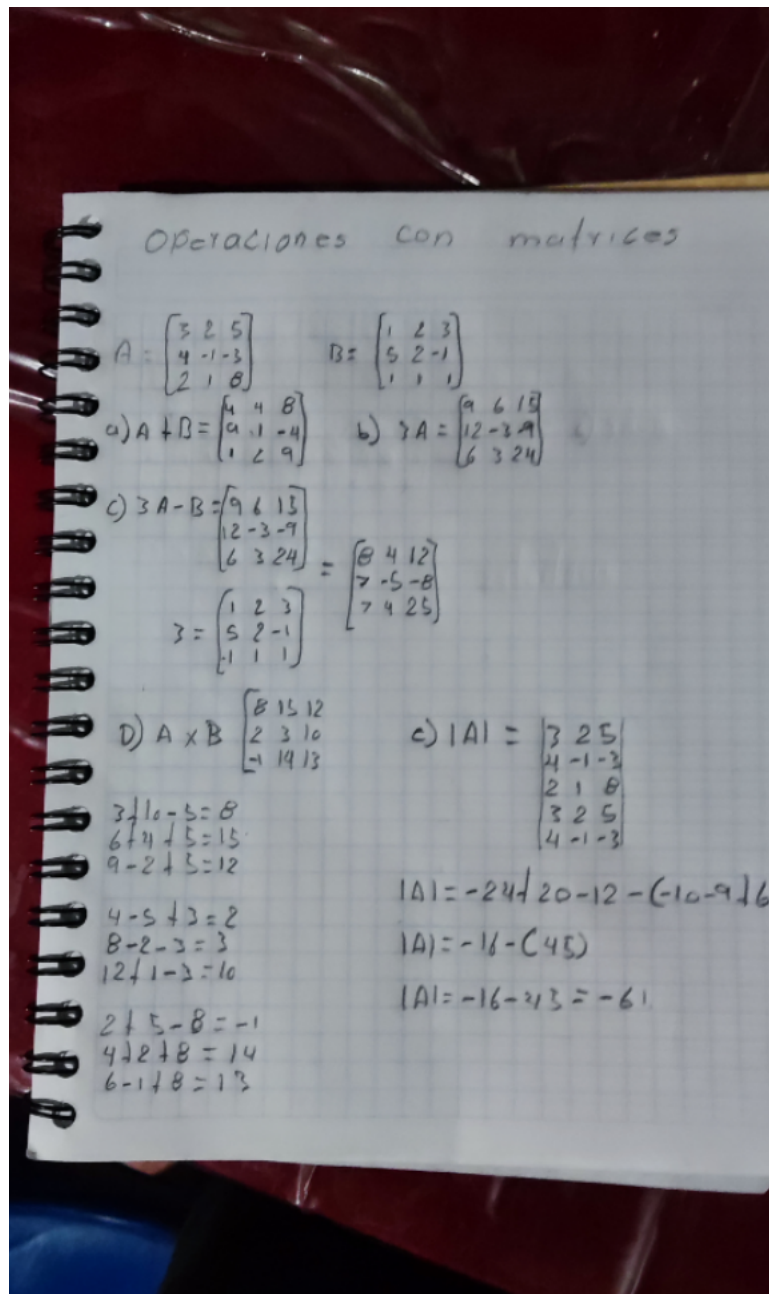 Operaciones con matrices
A = [3 2 5] B = [1 2 3]
[4 -1 -3] [5 2 -1]
[2 1 8] [-1 1 1]
a) A + B = [4 4 8] b) 3A = [9 6 15]
[9 1 -4] [12 -3 -9]
[1 2 9] [6 3 24]
c) 3A - B = [9 6 15]
[12 -3 -9]
[6 3 24] = [8 4 12]
[7 -5 -8]
[7 4 25]
3 = [1 2 3]
[5 2 -1]
[-1 1 1]
D) A x B [8 15 12
2 3 10
-1 14 13]
3+10-5=8
6+4+5=15
9-2+5=12
4-5+3=2
8-2-3=3
12+1-3=10
2+5-8=-1
4+2+8=14
6-1+8=13
e) |A| = |3 2 5|
|4 -1 -3|
|2 1 8|
|3 2 5|
|4 -1 -3|
|A| = -24+20-12-(-10-9+6
|A| = -16-(45)
|A| = -16-45 = -61